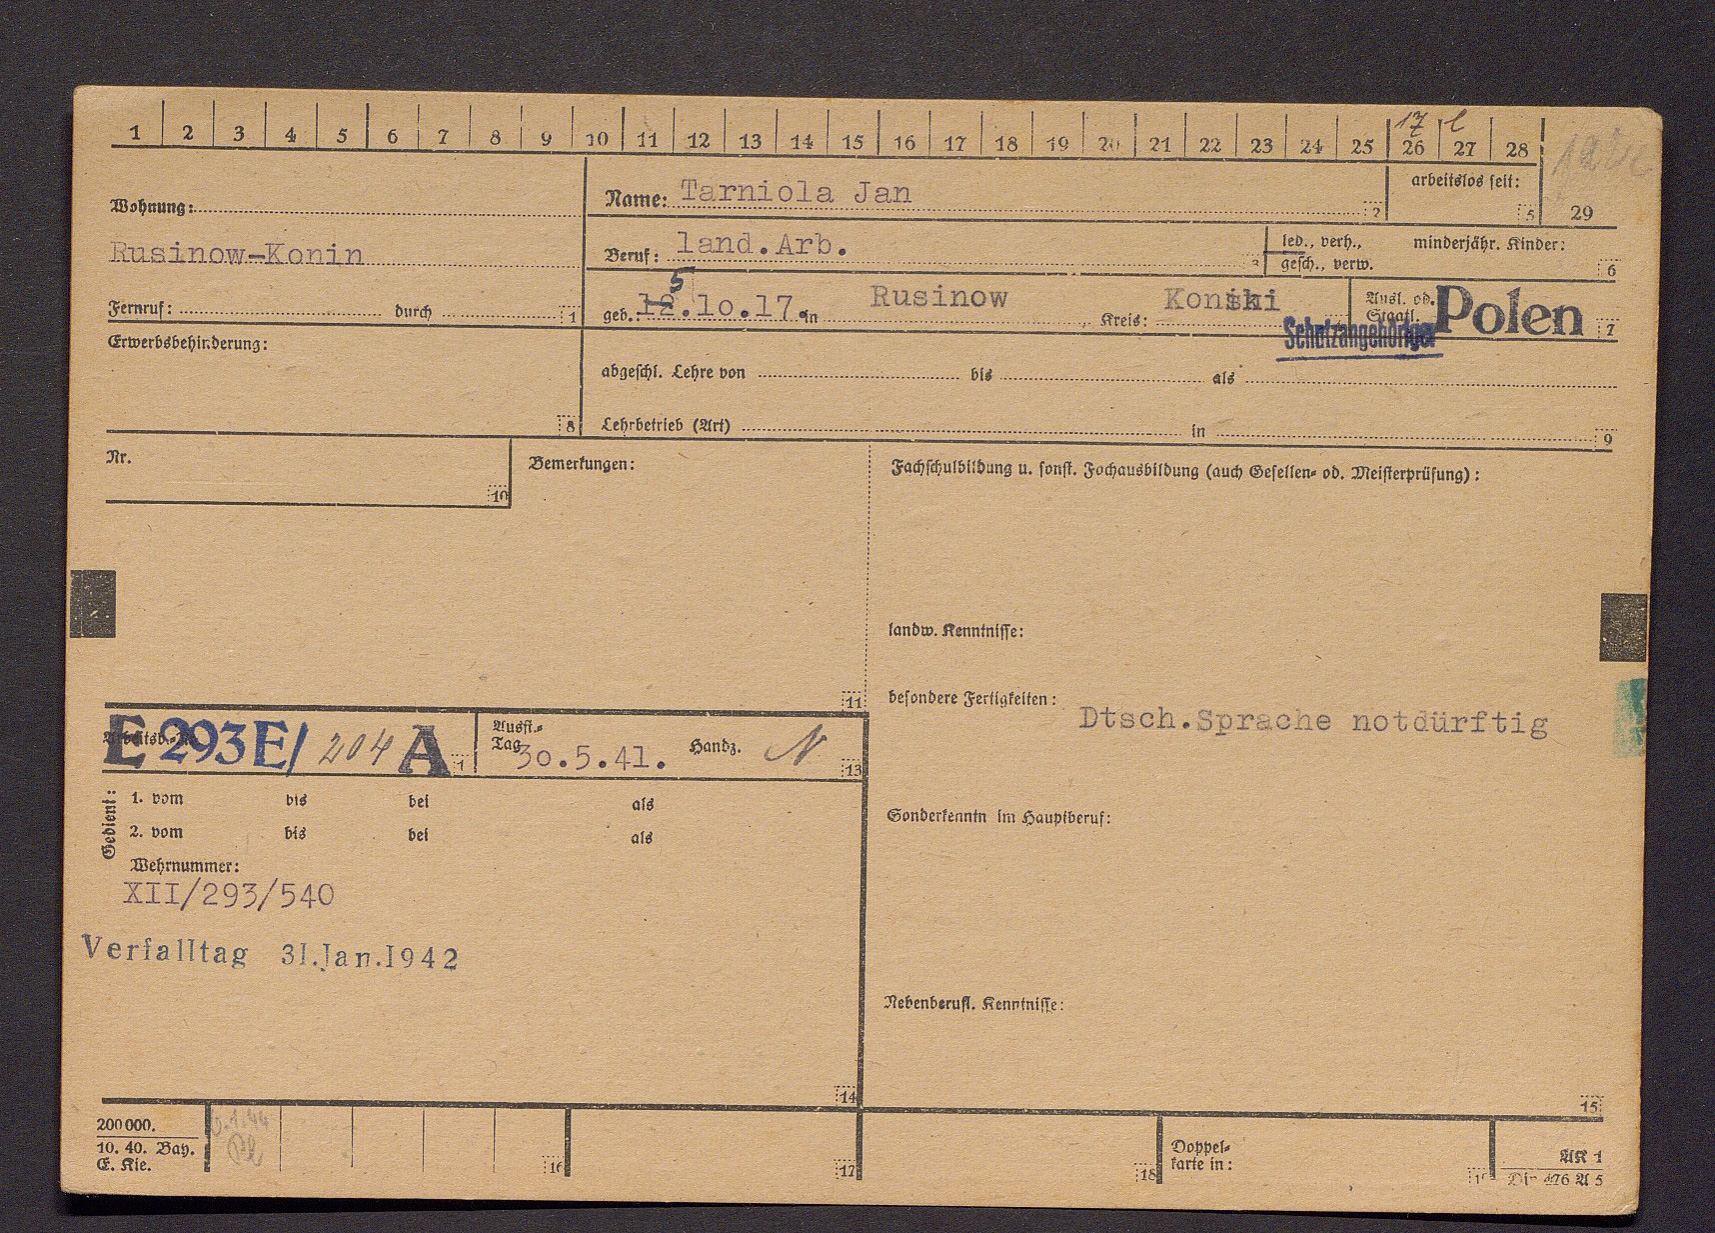 1 2 3 4 5 6 7 8 9 10 11 12 13 14 15 16 17 18 19 20 21 22 23 24 25 26 27 28
17 l
Wohnung:
Rusinow-Konin
Fernruf: durch 1
Name: Tarniola Jan 2
arbeitslos seit: 5
29
Beruf: land.Arb. 3
led., verh., gesch., verw.
minderjähr. Kinder: 6
5
geb.: 12.10.17. in Rusinow Kreis: Konski
Ausl. od. Staatl. Polen 7
Schutzangehöriger
Erwerbsbehinderung:
8
abgeschl. Lehre von bis als
Lehrbetrieb (Art) in 9
Nr.
10
Bemerkungen:
11
Fachschulbildung u. sonst. Fachausbildung (auch Gesellen- od. Meisterprüfung):
landw. Kenntnisse:
besondere Fertigkeiten:
Dtsch.Sprache notdürftig
Sonderkenntn im Hauptberuf:
Nebenberufl. Kenntnisse:
15
Arbeitsb.-Nr.
E 293E/ 204 A
Ausst.-Tag 30.5.41. Handz. N 13
Gedient:
1. vom bis bei als
2. vom bis bei als
Wehrnummer:
XII/293/540
Verfalltag 31.Jan.1942
14
200000.
10. 40. Bay.
E. Kie.
16
17
18
Doppel-
karte in:
19
AK 1
Din 476 A 5